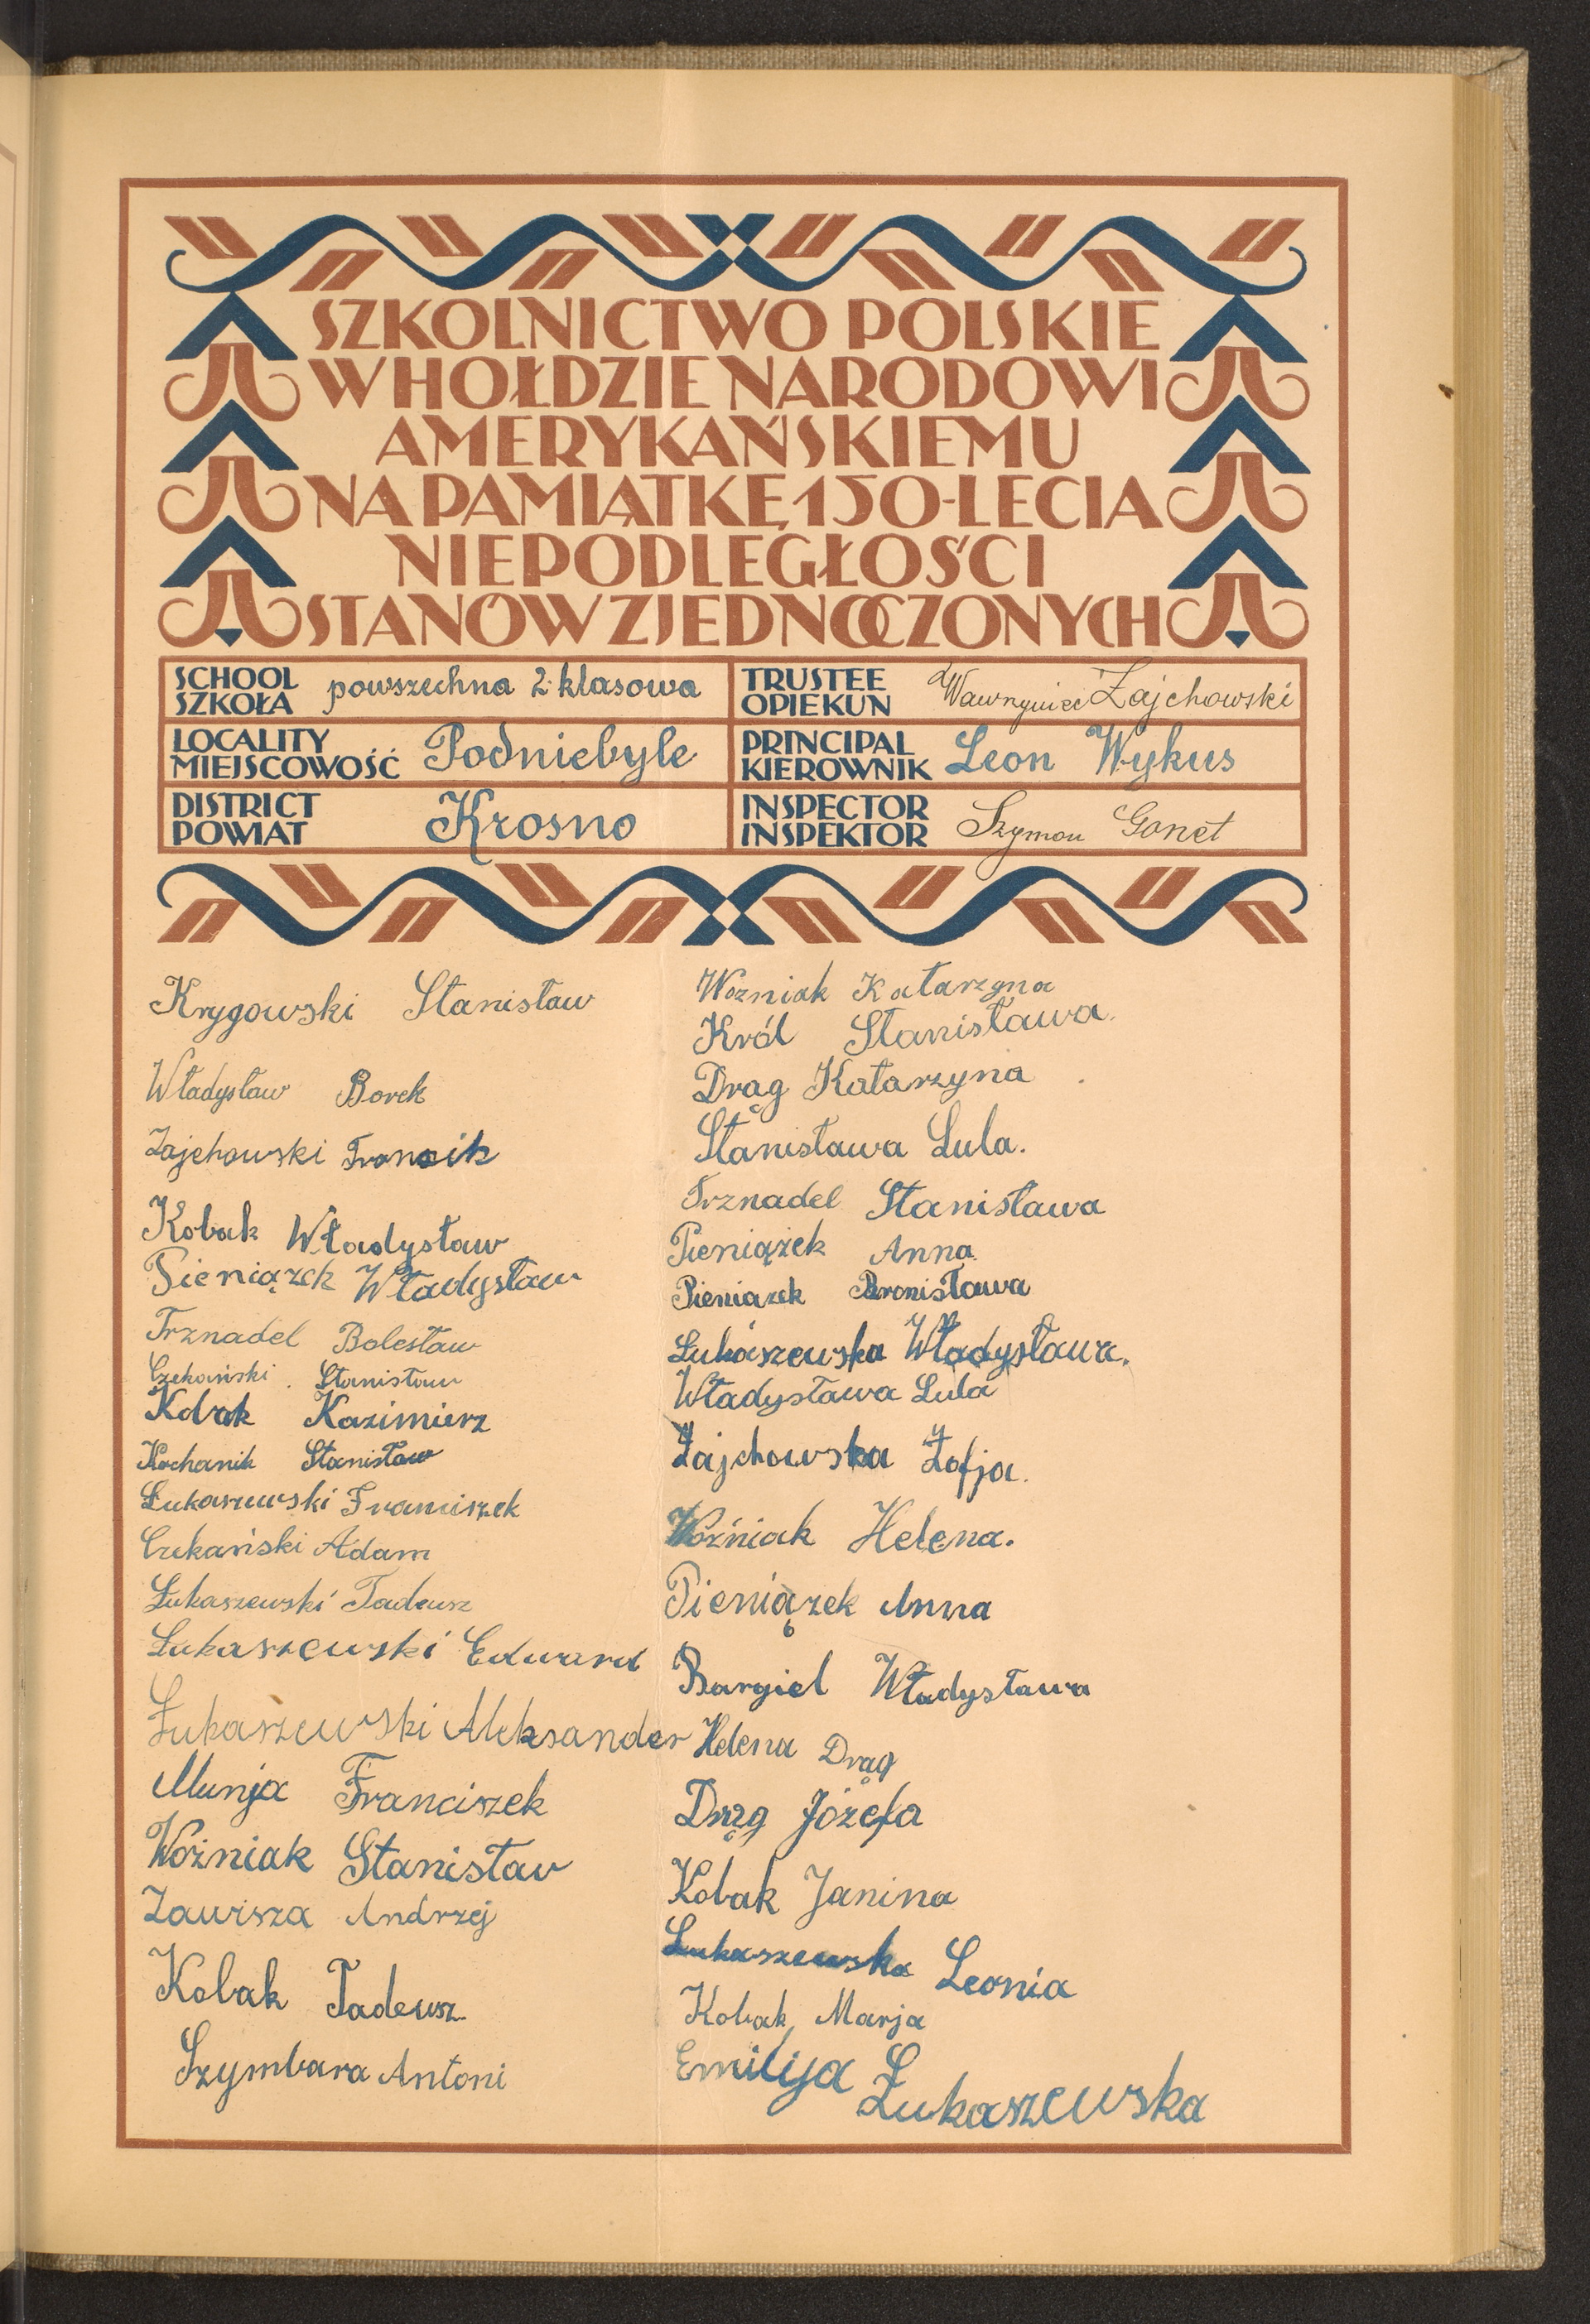 SZKOLNICTWO POLSKIE
W HOŁDZIE NARODOWI
AMERYKAŃSKIEMU
NA PAMIĄTKĘ 150-LECIA
NIEPODLEGŁOŚCI
STANÓW ZJEDNOCZONYCH
SCHOOL
SZKOŁA
powszechna 2 klasowa
TRUSTEE
OPIEKUN
Wawrzyniec Zajchowski
LOCALITY
MIEJSCOWOŚĆ
Podniebyle
PRINCIPAL
KIEROWNIK
Leon Wykus
DISTRICT
POWIAT
Krosno
INSPECTOR
INSPEKTOR
Szymon Gonet
Krygowski Stanisław
Władysław Borek
Zajchowski
Kobak Władysław
Pieniązek Władysław
Trznadel Bolesław
Czekański Stanisław
Kobak Kazimierz
Kochanik Stanisław
Łukaszewski Franciszek
Czekański Adam
Łukaszewski Tadeusz
Łukaszewski Edward
Łukaszewski Aleksander
Munja Franciszek
Woźniak Stanisław
Zawisza Andrzej
Kobak Tadeusz
Szymbara Antoni
Wozniak Katarzyna
Król Stanisława.
Drąg Katarzyna
Stanisława Lula.
Trznadel Stanisława
Pieniążek Anna
Pieniazek Bronisława
Łukaszewska Władysława.
Władysława Lula
Zajchowska Zofja.
Woźniak Helena.
Pieniązek Anna
Bargiel Władysława
Helena Drąg
Drąg Józefa
Kobak Janina
Łukaszewska Leonia
Kobak Marja
Emilija Łukaszewska